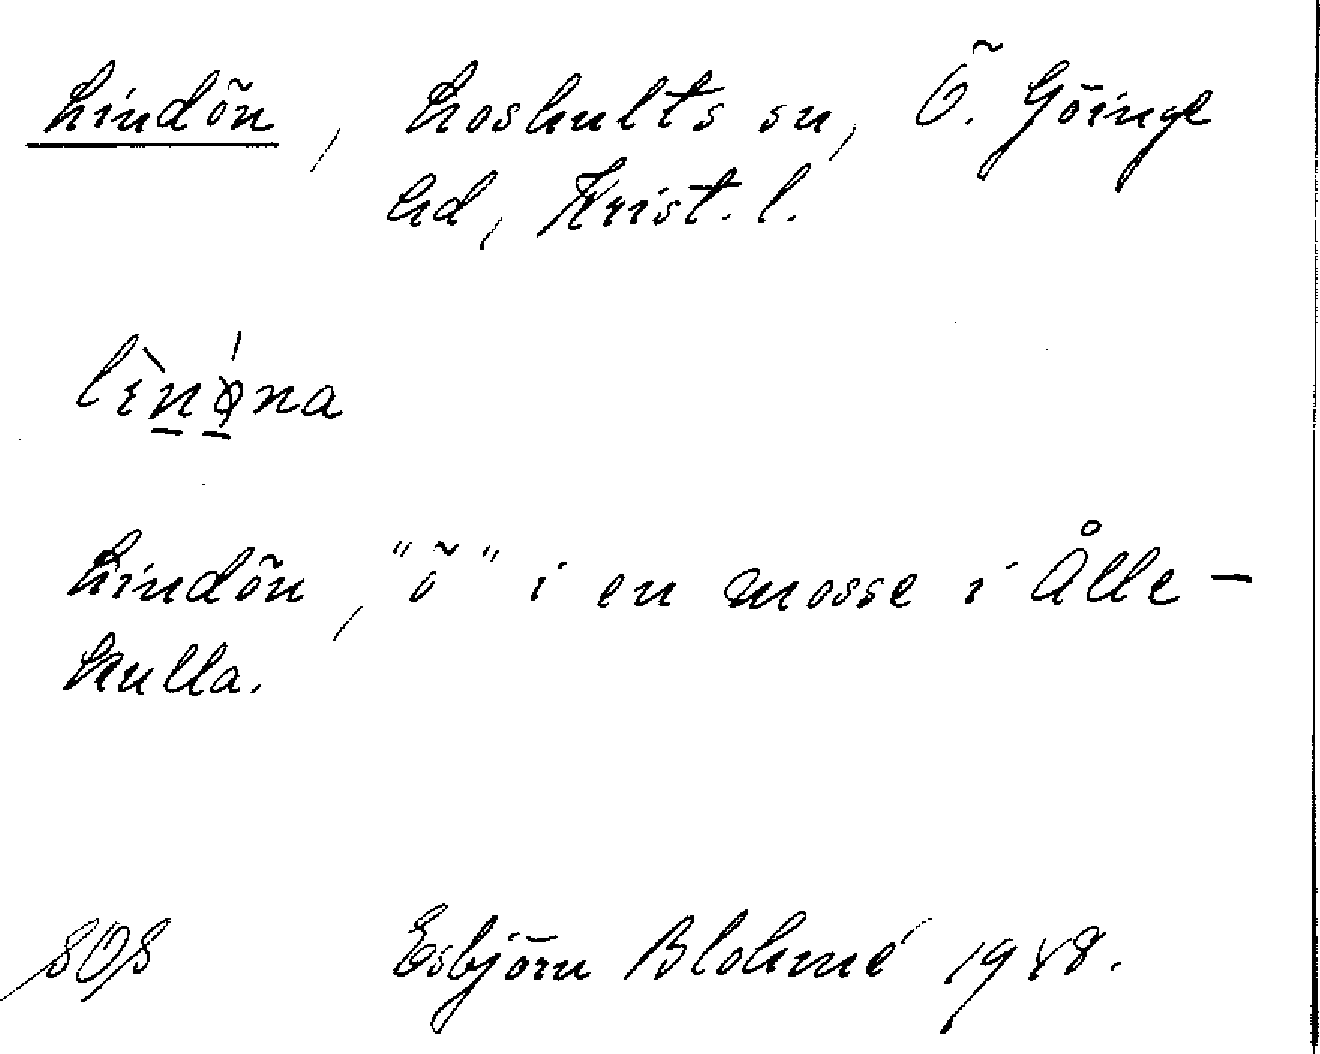 Lindön, Loshults sn, Ö. Göinge
hd, Krist. l.
Lindön, "ö" i en mosse i Ålle-
kulla.
Esbjörn Blohmé 1948.